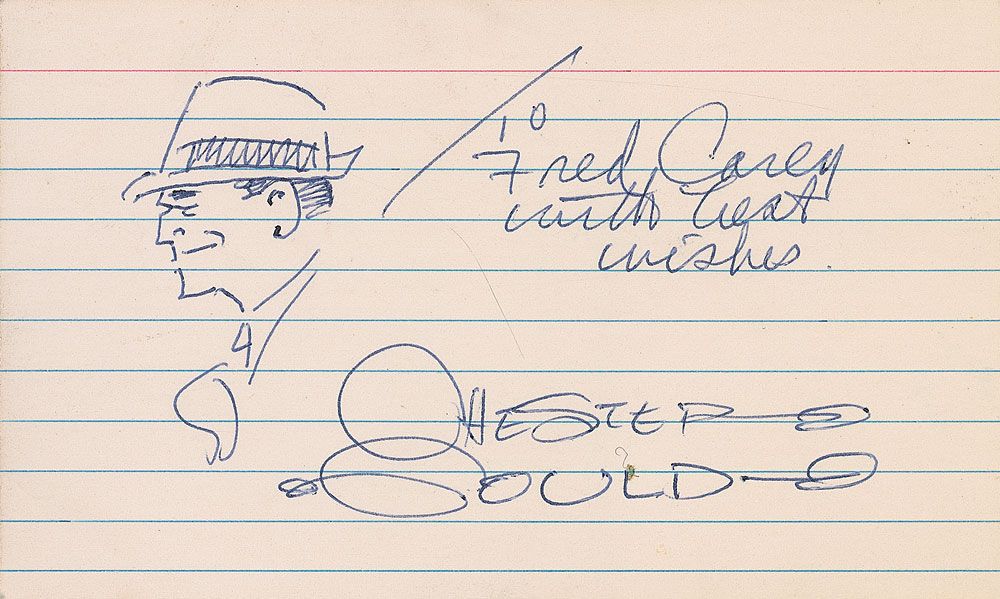 To
Fred Carey
with best
wishes.
CHESTER
GOULD